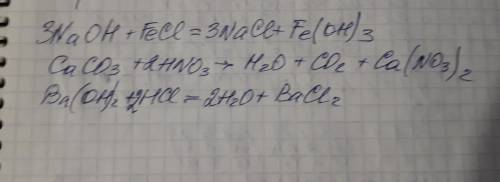 3NaOH + FeCl = 3NaCl + Fe(OH)3
CaCO3 + 2HNO3 → H2O + CO2 + Ca(NO3)2
Ba(OH)2 + 2HCl = 2H2O + BaCl2